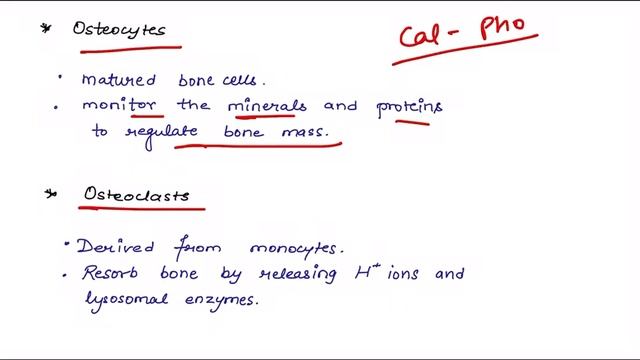 * Osteocytes
Cal - Pho
• matured bone cells.
• monitor the minerals and proteins
to regulate bone mass.
* Osteoclasts
• Derived from monocytes.
• Resorb bone by releasing H⁺ ions and
lysosomal enzymes.